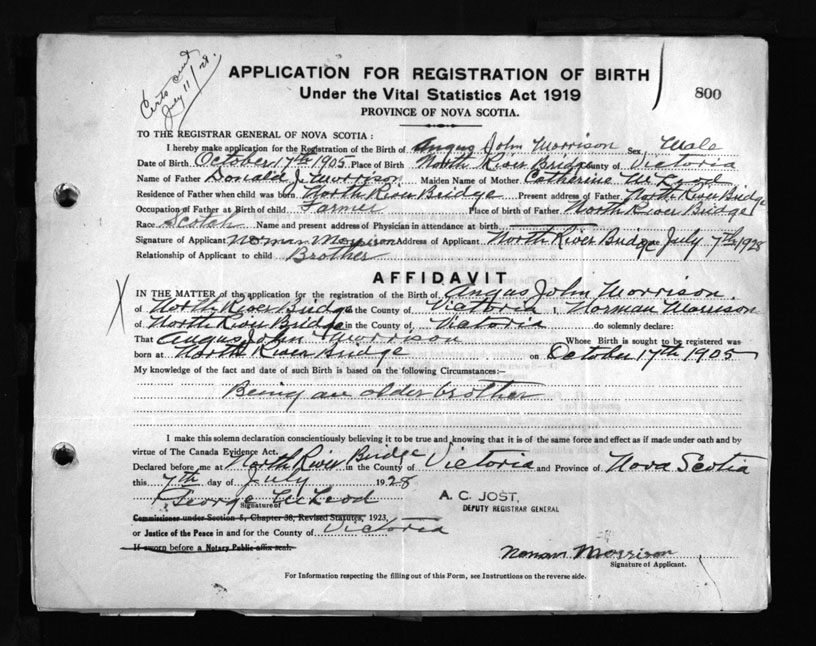 Certs sent
July 11/28.
APPLICATION FOR REGISTRATION OF BIRTH
Under the Vital Statistics Act 1919
800
PROVINCE OF NOVA SCOTIA.
TO THE REGISTRAR GENERAL OF NOVA SCOTIA :
I hereby make application for the Registration of the Birth of Angus John Morrison Sex Male
Date of Birth October 17th 1905 Place of Birth North River Bridge County of Victoria
Name of Father Donald J. Morrison Maiden Name of Mother Catherine McLeod
Residence of Father when child was born North River Bridge Present address of Father North River Bridge
Occupation of Father at Birth of child Farmer Place of birth of Father North River Bridge
Race Scotch Name and present address of Physician in attendance at birth
Signature of Applicant Norman Morrison Address of Applicant North River Bridge July 7th 1928
Relationship of Applicant to child Brother
AFFIDAVIT
IN THE MATTER of the application for the registration of the Birth of Angus John Morrison.
of North River Bridge in the County of Victoria I, Norman Morrison
of North River Bridge in the County of Victoria do solemnly declare:
That Angus John Morrison Whose Birth is sought to be registered was
born at North River Bridge on October 17th 1905
My knowledge of the fact and date of such Birth is based on the following Circumstances:—
Being an older brother
I make this solemn declaration conscientiously believing it to be true and knowing that it is of the same force and effect as if made under oath and by
virtue of The Canada Evidence Act.
Declared before me at North River Bridge in the County of Victoria and Province of Nova Scotia
this 7th day of July 1928
George McLeod
Signature of
A. C. JOST,
DEPUTY REGISTRAR GENERAL
Commissioner under Section 5, Chapter 38, Revised Statutes, 1923,
or Justice of the Peace in and for the County of Victoria
If sworn before a Notary Public affix seal.
Norman Morrison
Signature of Applicant.
For Information respecting the filling out of this Form, see Instructions on the reverse side.